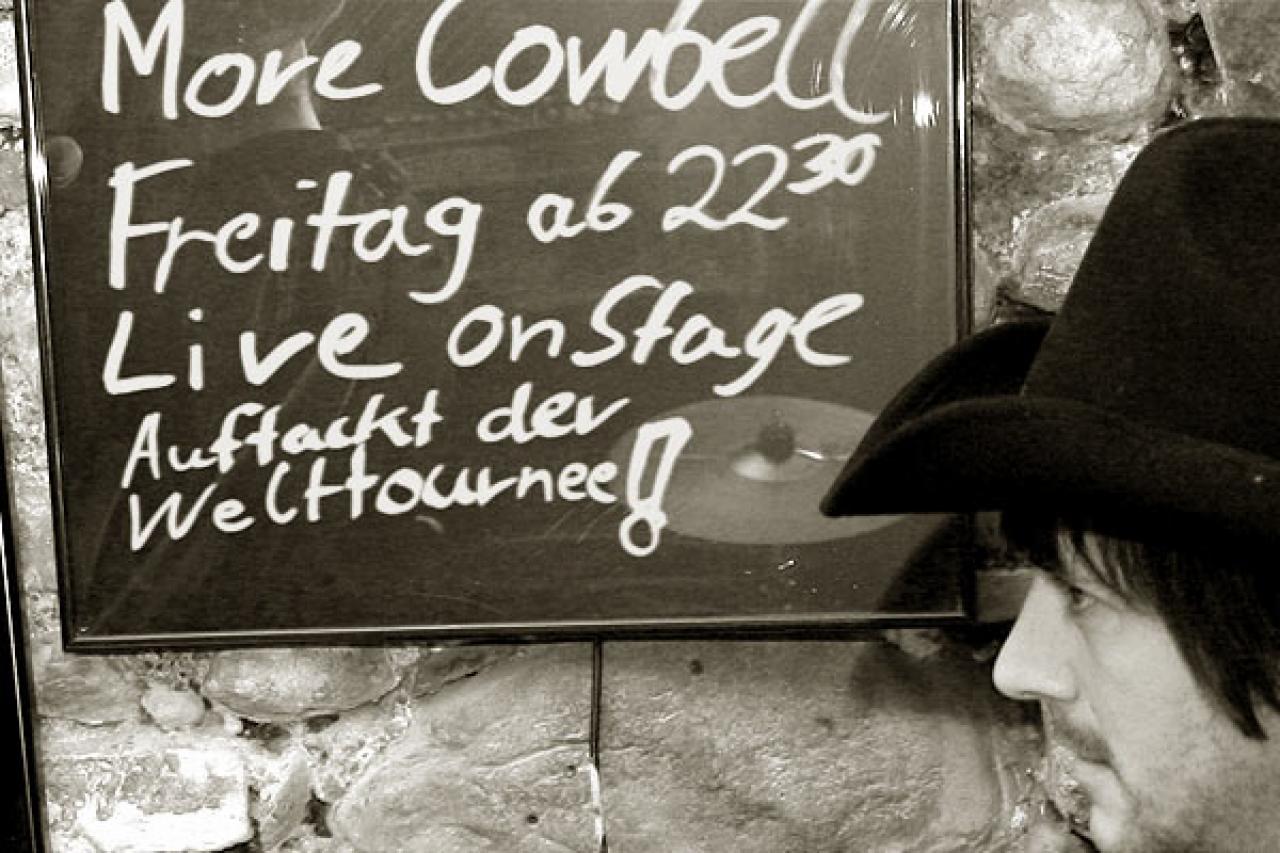 More Cowbell
Freitag ab 22 30
Live on Stage
Auftackt der
Welttournee!